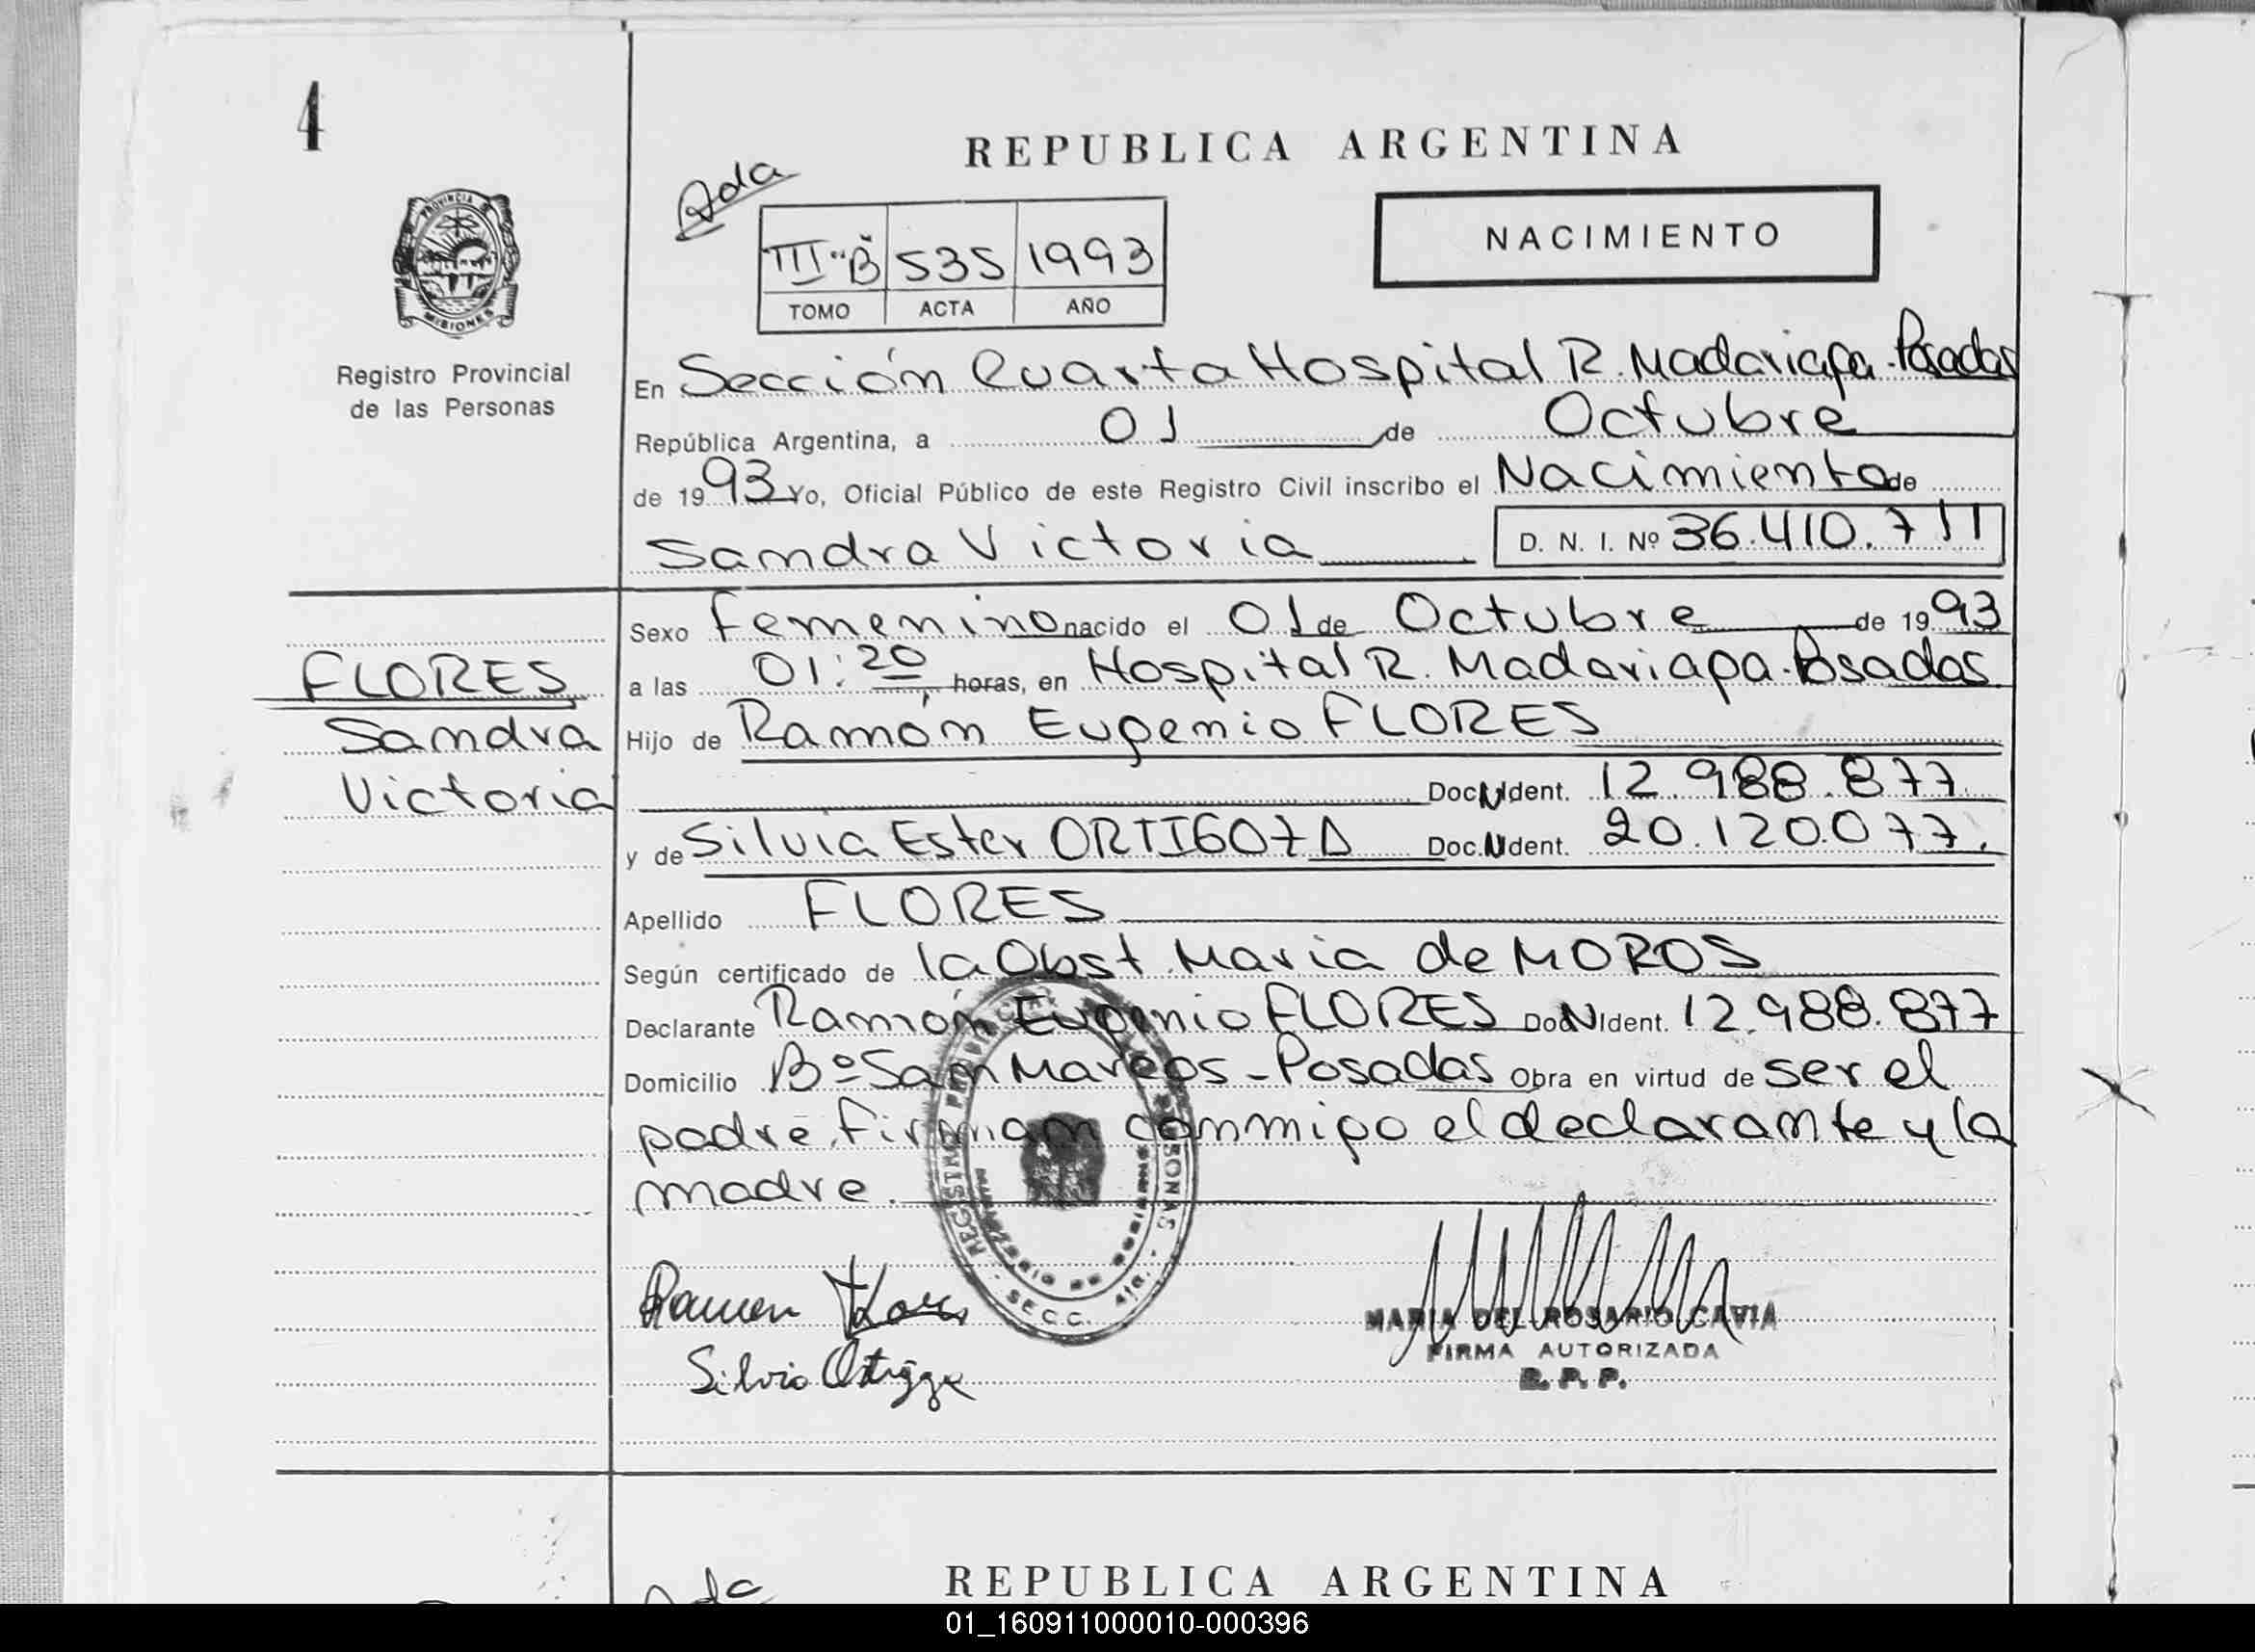 4
REPUBLICA ARGENTINA
Ada
NACIMIENTO
III "B" 535 1993
TOMO ACTA AÑO
PROVINCIA D MISIONES
Registro Provincial
de las Personas
En Sección Cuarta Hospital R. Madariaga - Posadas
República Argentina, a 01 de Octubre
de 1993 Yo, Oficial Público de este Registro Civil inscribo el Nacimiento de
Sandra Victoria D. N. I. Nº 36.410.711
Sexo Femenino nacido el 01 de Octubre de 1993
FLORES
a las 01:20 horas, en Hospital R. Madariaga - Posadas
Sandra
Hijo de Ramón Eugenio FLORES
Victoria
Doc.N Ident. 12.988.877
y de Silvia Ester ORTIGOZA Doc.N Ident. 20.120.077.
Apellido FLORES
Según certificado de la Obst. Maria de MOROS
Declarante Ramón Eugenio FLORES Doc N Ident. 12.988.877
Domicilio Bº San Marcos - Posadas Obra en virtud de ser el
padre. Firman conmigo el declarante y la
madre.
REGISTRO PROVINCIAL PERSONAS - SECC. 4ta. -
Ramon Flores
MARIA DEL ROSARIO CAVIA
FIRMA AUTORIZADA
R. P. P.
Silvia Ortigoza
Ada
REPUBLICA ARGENTINA
01_160911000010-000396